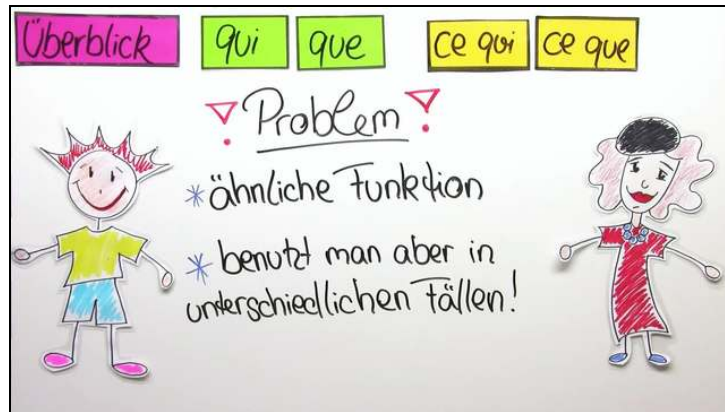 Überblick qui que ce qui ce que
Problem
*ähnliche Funktion
*benutzt man aber in
unterschiedlichen Fällen!